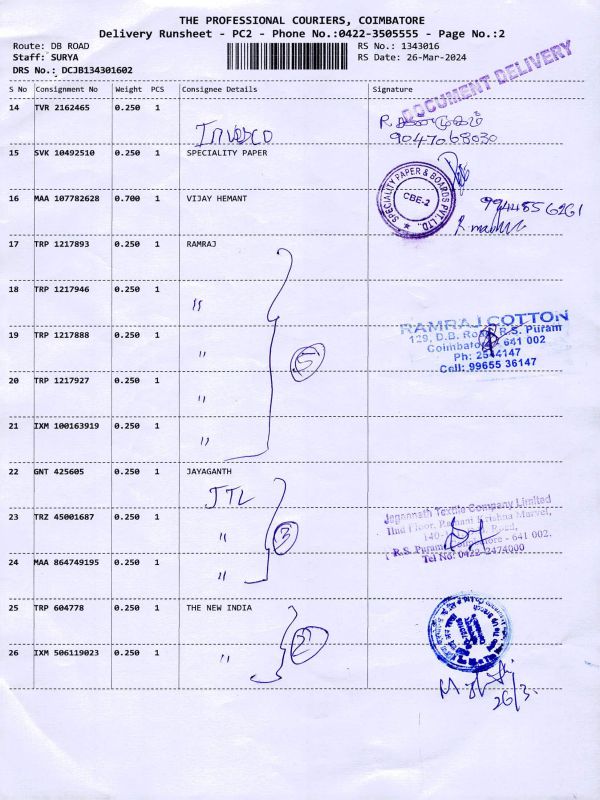 THE PROFESSIONAL COURIERS, COIMBATORE
Delivery Runsheet - PC2 - Phone No.:0422-3505555 - Page No.:2
Route: DB ROAD
Staff: SURYA
DRS No.: DCJB134301602
RS No.: 1343016
RS Date: 26-Mar-2024
DOCUMENT DELIVERY
S No Consignment No Weight PCS Consignee Details Signature
14 TVR 2162465 0.250 1
Invesco
R. சண்முகம்
9047068030
15 SVK 10492510 0.250 1 SPECIALITY PAPER
SPECIALITY PAPER & BOARDS PVT. LTD.,
CBE-2
16 MAA 107782628 0.700 1 VIJAY HEMANT
9944856261
17 TRP 1217893 0.250 1 RAMRAJ
18 TRP 1217946 0.250 1 "
19 TRP 1217888 0.250 1 "
5
RAMRAJ COTTON
129, D.B. Road, R.S. Puram
Coimbatore - 641 002
Ph: 2544147
Cell: 99655 36147
20 TRP 1217927 0.250 1 "
21 IXM 100163919 0.250 1 "
22 GNT 425605 0.250 1 JAYAGANTH
JTL
23 TRZ 45001687 0.250 1 "
3
Jagannath Textile Company Limited
IInd Floor, Krishna Marvel,
140- Road,
R.S. Puram, - 641 002.
Tel No: 0422-2474000
24 MAA 864749195 0.250 1 "
25 TRP 604778 0.250 1 THE NEW INDIA
2
26 IXM 506119023 0.250 1 "
26/3.